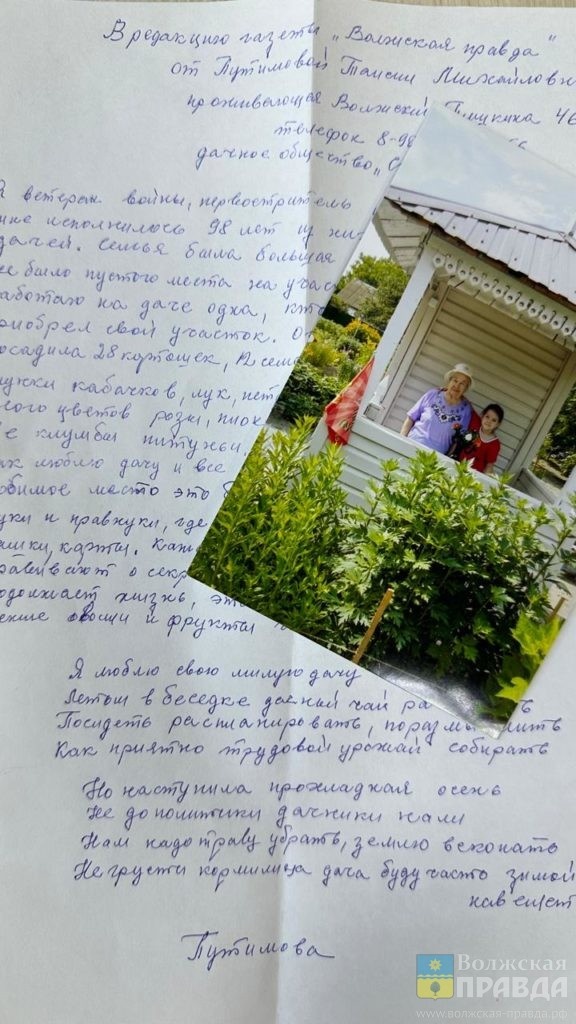 В редакцию газеты „Волжская правда"
от Путимовой Таисии Михайловн
проживающая Волжский Пушкина 46
телефон 8-90
дачное общество „С
ветеран войны, первостритель
мне исполнилось 98 лет из них
дачей. Семья была большая
не было пустого места на учас
аботаю на даче одна, кто
риобрел свой участок. О
осадила 28 картошек, 12 семе
кабачков, лук, пет
ого цветов розы, пион
е клумбы питуньи,
ак люблю дачу и все
юбимое место это б
уки и правнуки, где
ашки, карты. Каж
о секр
одолжает жизнь, это
овощи и фрукты
Я люблю свою милую дачу
Летом в беседке дачный чай ра
Посидеть распланировать, поразмыслить
Как приятно трудовой урожай собирать
Но наступила прохладная осень
Не до политики дачники нали
Нам надо траву убрать, землю вскопать
Не грусти кормилица дача буду часто зимой
навещет
Путимова
Волжская
ПРАВДА
www.волжская-правда.рф